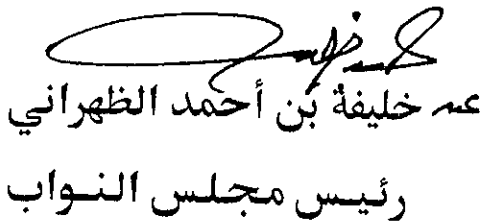 عـه خليفة بن أحمد الظهراني
رئيس مجلس النواب